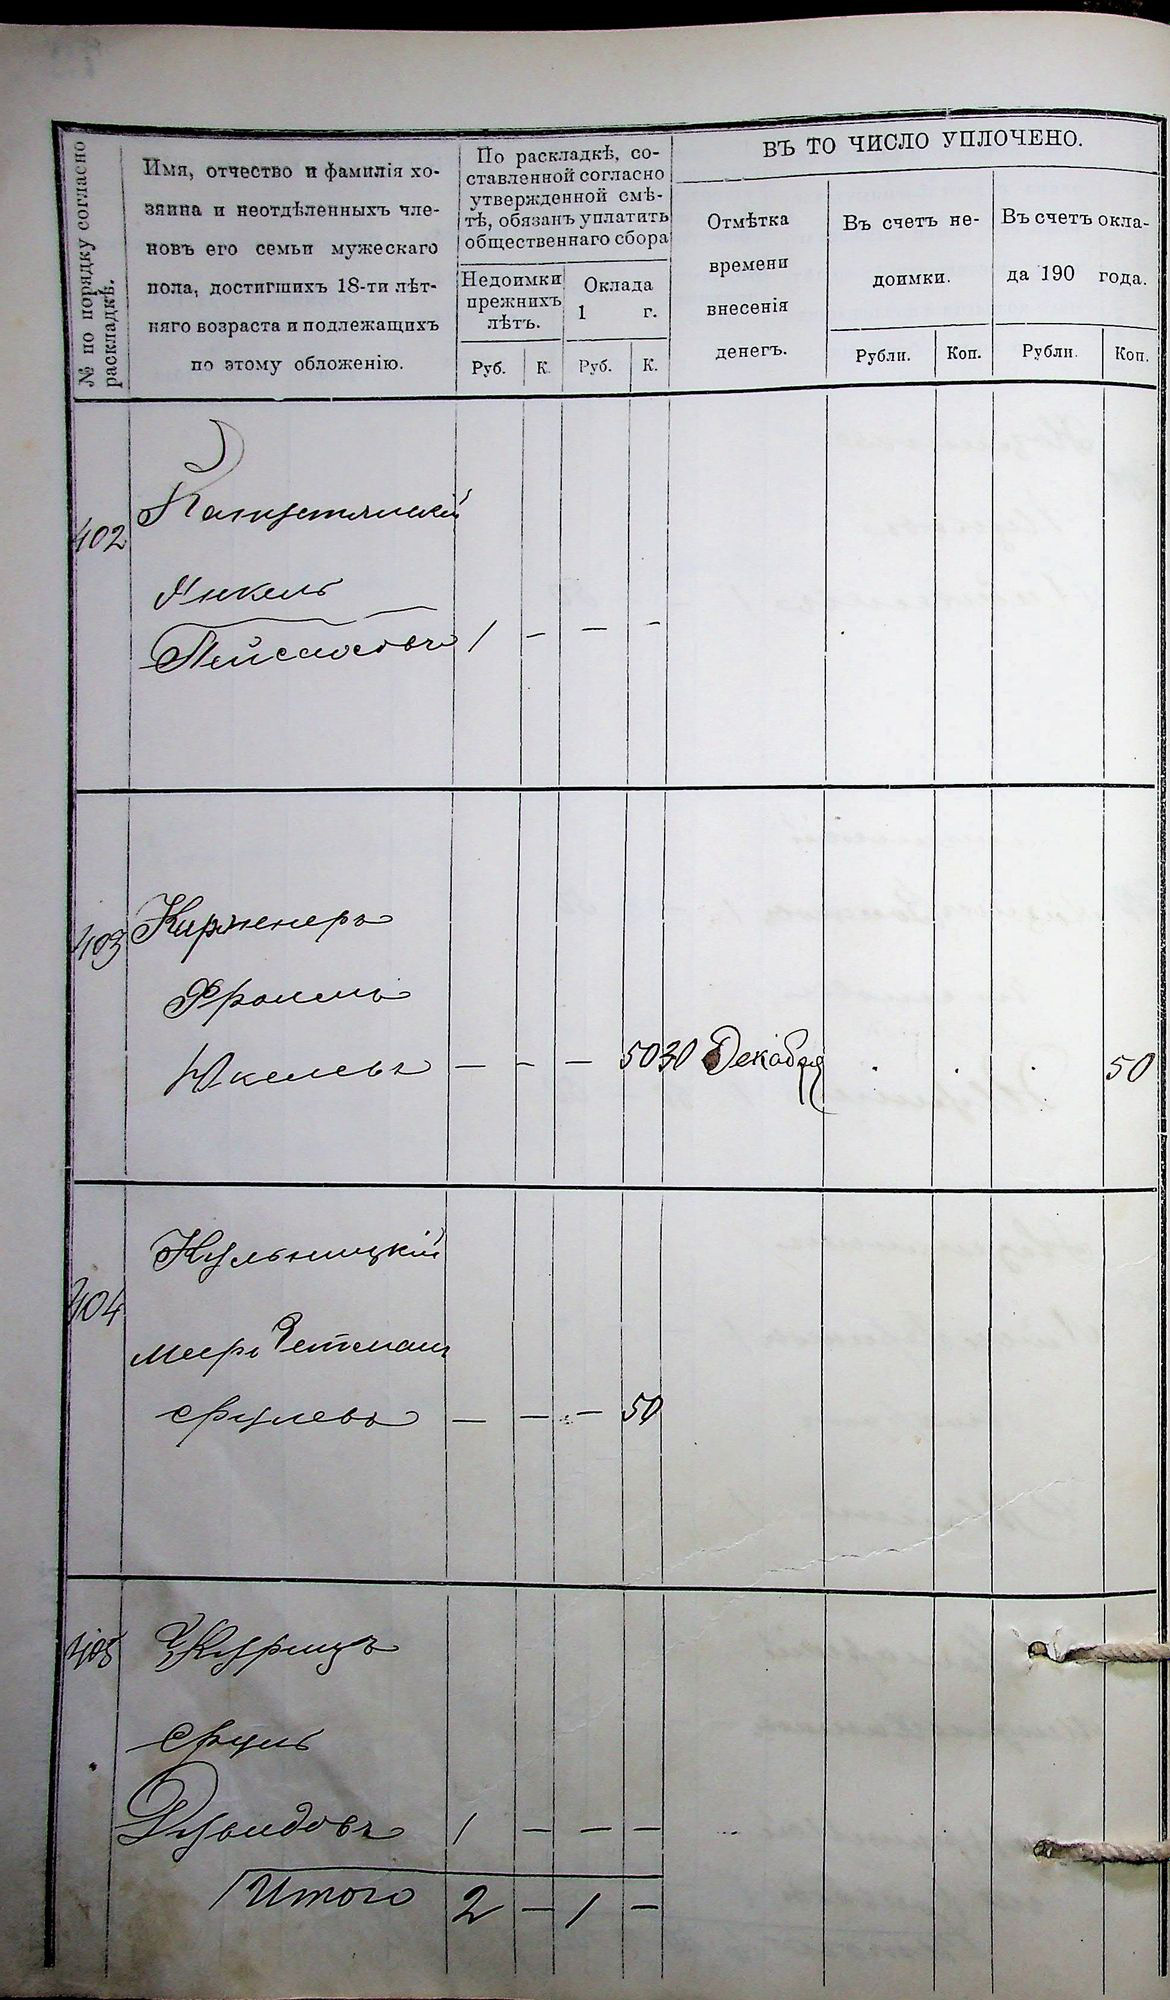 № по порядку согласно
раскладкѣ.
Имя, отчество и фамилія хо-
зяина и неотдѣленныхъ чле-
новъ его семьи мужескаго
пола, достигшихъ 18-ти лѣт-
няго возраста и подлежащихъ
по этому обложенію.
По раскладкѣ, со-
ставленной согласно
утвержденной смѣ-
тѣ, обязанъ уплатить
общественнаго сбора
Недоимки
прежнихъ
лѣтъ.
Оклада
1 г.
Руб. К. Руб. К.
ВЪ ТО ЧИСЛО УПЛОЧЕНО.
Отмѣтка
времени
внесенія
денегъ.
Въ счетъ не-
доимки.
Въ счетъ окла-
да 190 года.
Рубли. Коп. Рубли. Коп.
402
Янкель
1 - - -
403 Киржнеръ
Фроимъ
Юкелевъ - - - 50 30 Декабря . . . 50
Кульницкій
404
Мееръ
Срулевъ - - - 50
405
Сруль
Давидовъ 1 - - -
Итого 2 - 1 -